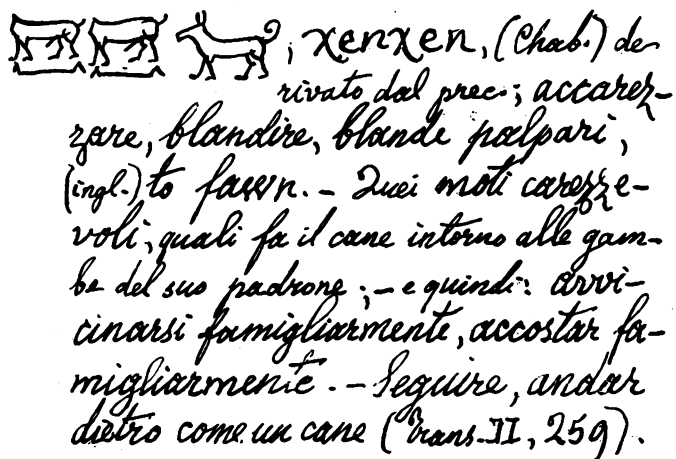 ; xenxen, (Chab.) de-
rivato dal prec.; accarez-
zare, blandire, blande palpari,
(ingl.) to fawn. – Quei moti carezze-
voli, quali fa il cane intorno alle gam-
be del suo padrone; – e quindi: avvi-
cinarsi famigliarmente, accostar fa-
migliarmente. – Seguire, andar
dietro come un cane (Trans. II, 259).